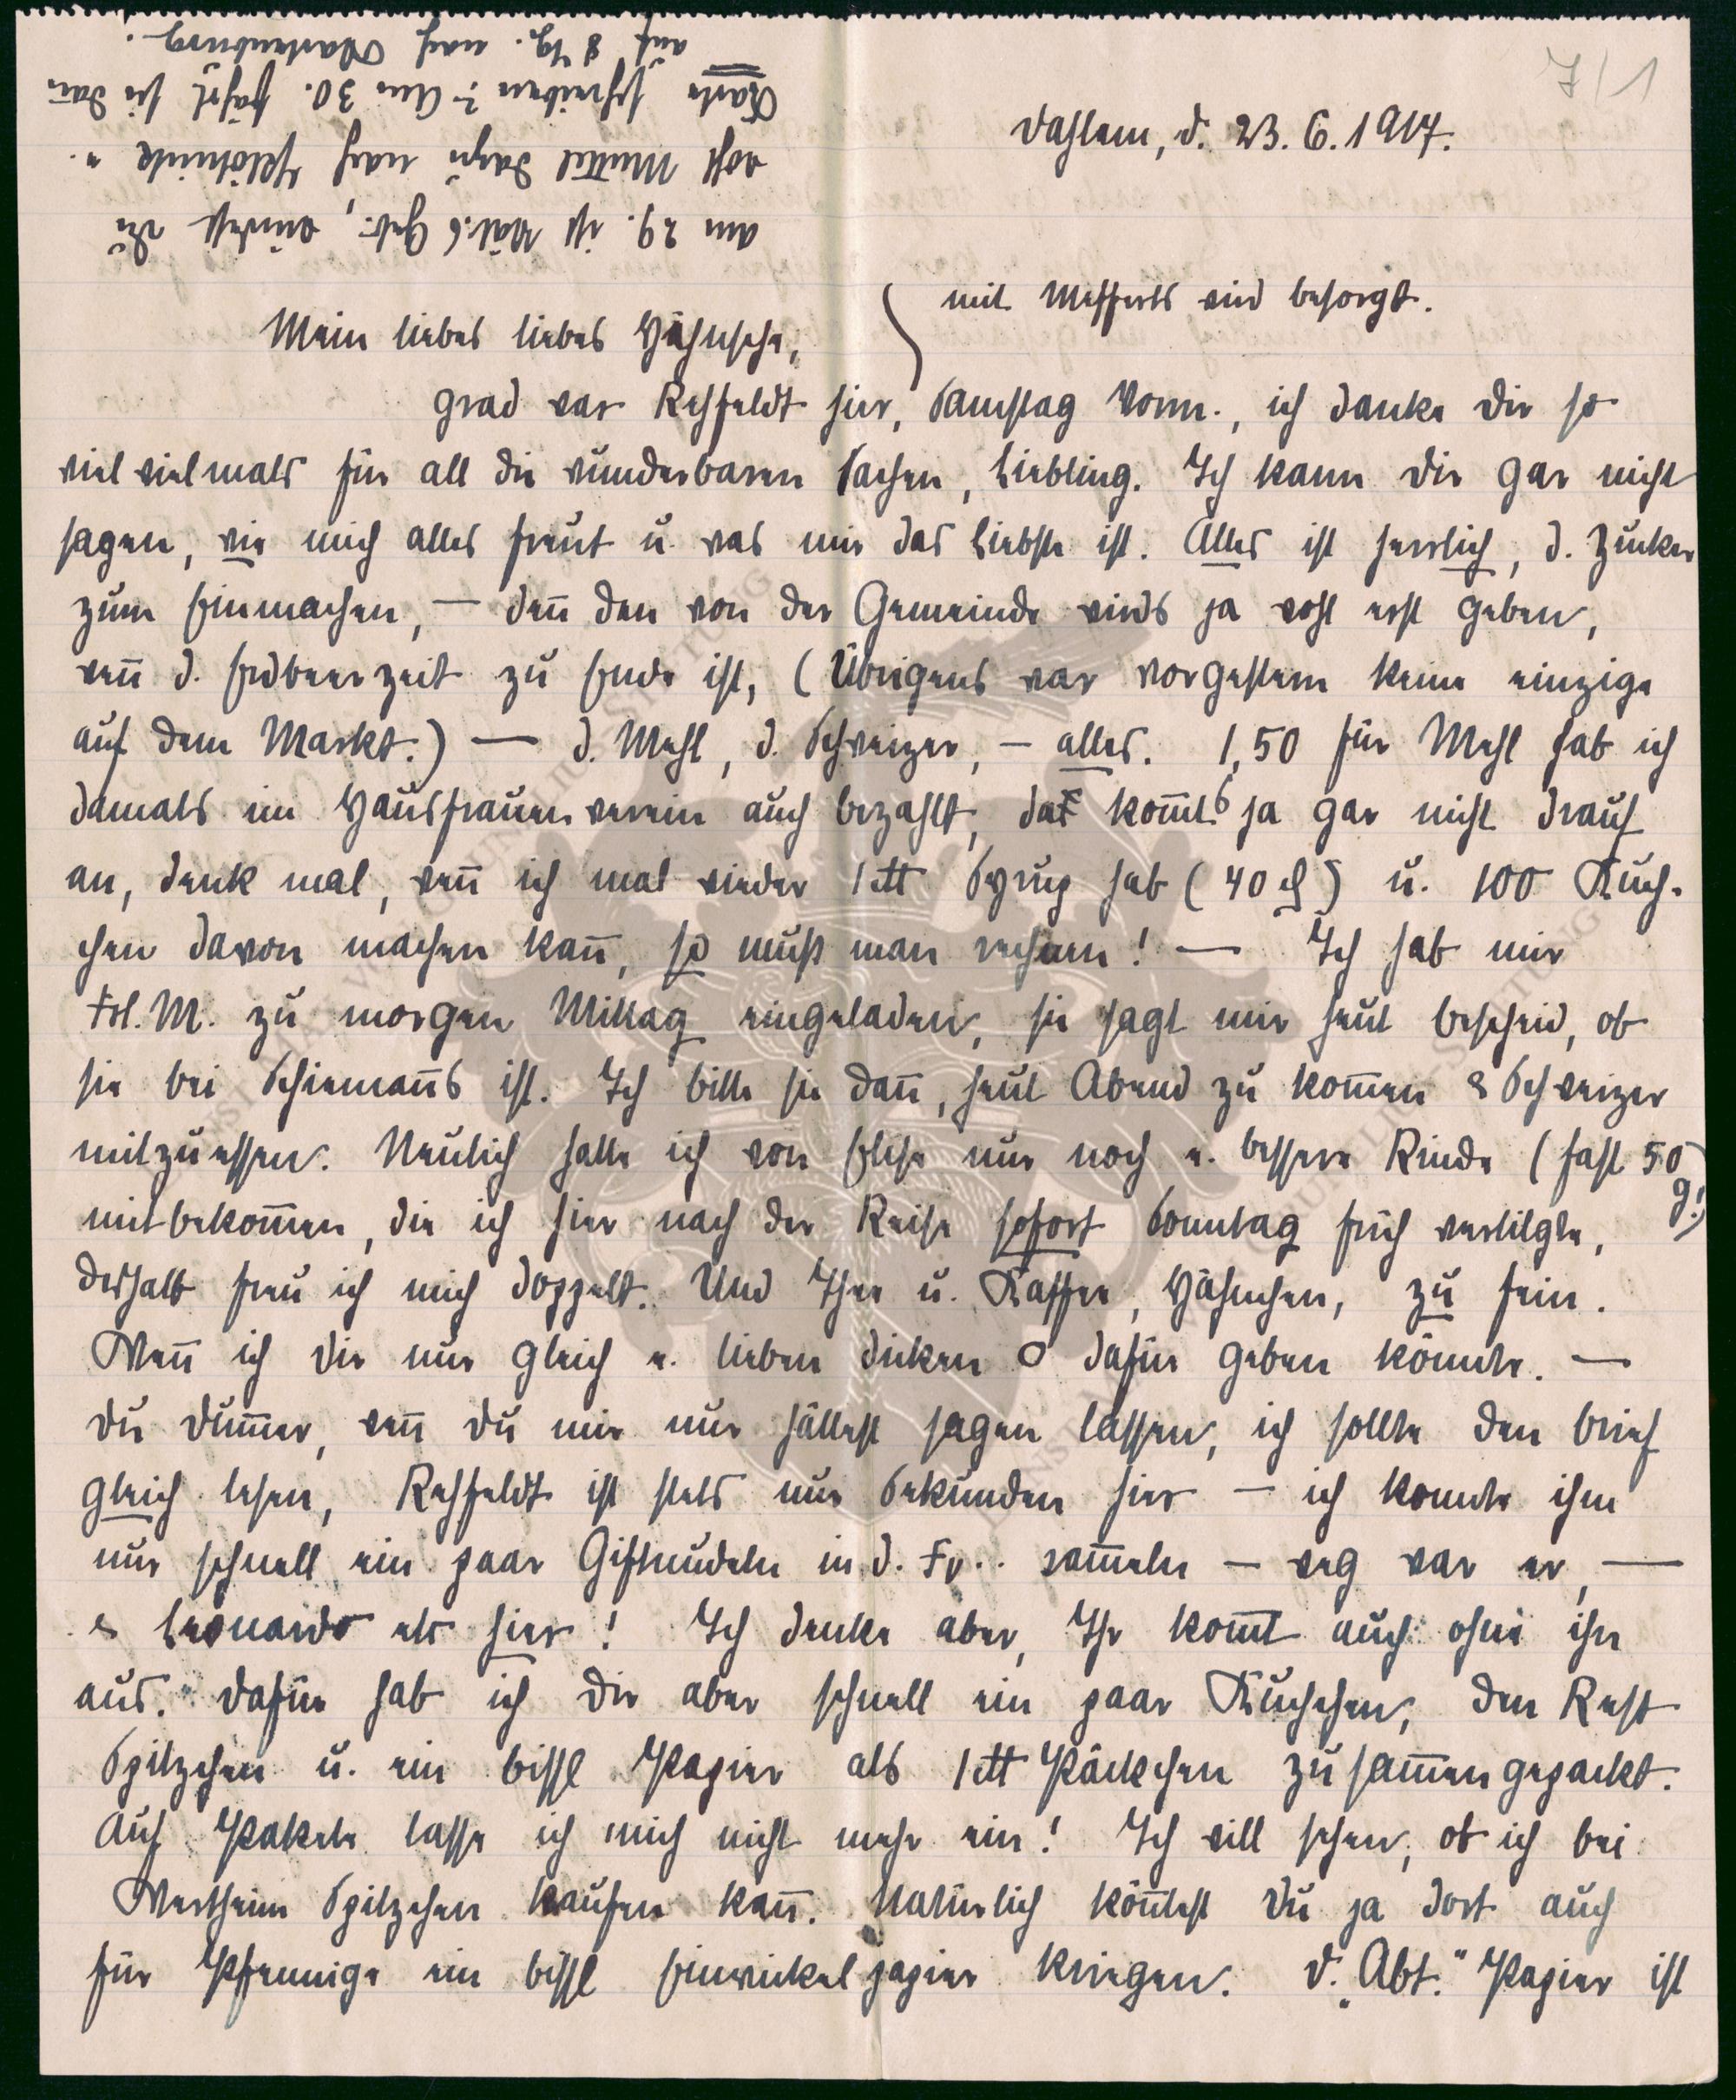 7/1
Dahlem, d. 23.6.1917.
am 29. ist Geb., würdest Du
wohl Mutter dazu nach
Karte schreiben? Am 30. fährt sie dañ
auf 8 Tg. nach Wartenburg.
mit Messerts wird besorgt.
Mein liebes liebes Hähnsche,
grad war Rehfeldt hier, Samstag Vorm., ich danke Dir so
viel vielmals für all die wunderbaren Sachen, Liebling. Ich kann Dir gar nicht
sagen, wie mich alles freut u. was mir das Liebste ist. Alles ist herrlich, d. Zucker
zum Einmachen, — deñ den von der Gemeinde wirds ja wohl erst geben,
weñ d. Erdbeerzeit zu Ende ist, (Übrigens war vorgestern keine einzige
auf dem Markt.) — d. Mehl, d. Schweizer, — alles. 1,50 für Mehl hab ich
damals im Hausfrauenverein auch bezahlt, da kom̄ts ja gar nicht drauf
an, denk mal, weñ ich mal wieder 1 ℔ Syrup hab (40 ₰) u. 100 Kuch-
chen davon machen kañ, so muß man rechnen! — Ich hab mir
Frl. M. zu morgen Mittag eingeladen, sie sagt mir heut bescheid, ob
sie bei Schiemañs ist. Ich bitte sie dañ, heut Abend zu kom̄en & Schweizer
mitzuessen. Neulich hatte ich von Else nur noch e. bessere Rinde (fast 50 g!)
mitbekom̄en, die ich hier nach der Reise sofort Sonntag früh vertilgte,
deshalb freu ich mich doppelt. Und Thee u. Kaffee, Hähnchen, zu fein.
Weñ ich Dir nur gleich e. lieben dicken O dafür geben könnte. —
Du Dum̄er, weñ Du mir nur hättest sagen lassen, ich sollte den Brief
gleich lesen, Rehfeldt ist stets nur Sekunden hier — ich konnte ihm
nur schnell ein paar Giftnudeln in d. Fr.. ram̄eln — weg war er, —
& Leonardo etc hier! Ich denke aber, Ihr kom̄t auch ohne ihn
aus. Dafür hab ich Dir aber schnell ein paar Kuchchen, den Rest
Spitzchen u. ein bissl Papier als 1 ℔ Päckchen zusam̄engepackt.
Auf Pakete lasse ich mich nicht mehr ein! Ich will sehen, ob ich bei
Wertheim Spitzchen kaufen kañ. Natürlich köñtest Du ja dort auch
für Pfennige ein bissl Einwickelpapier kriegen. D. „Abt." Papier ist